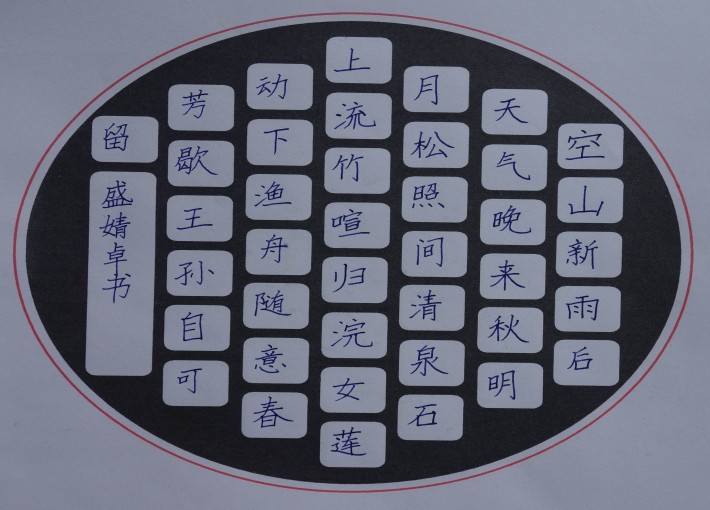 空山新雨后
天气晚来秋明
月松照间清泉石
上流竹喧归浣女莲
动下渔舟随意春
芳歇王孙自可
留
盛婧卓书